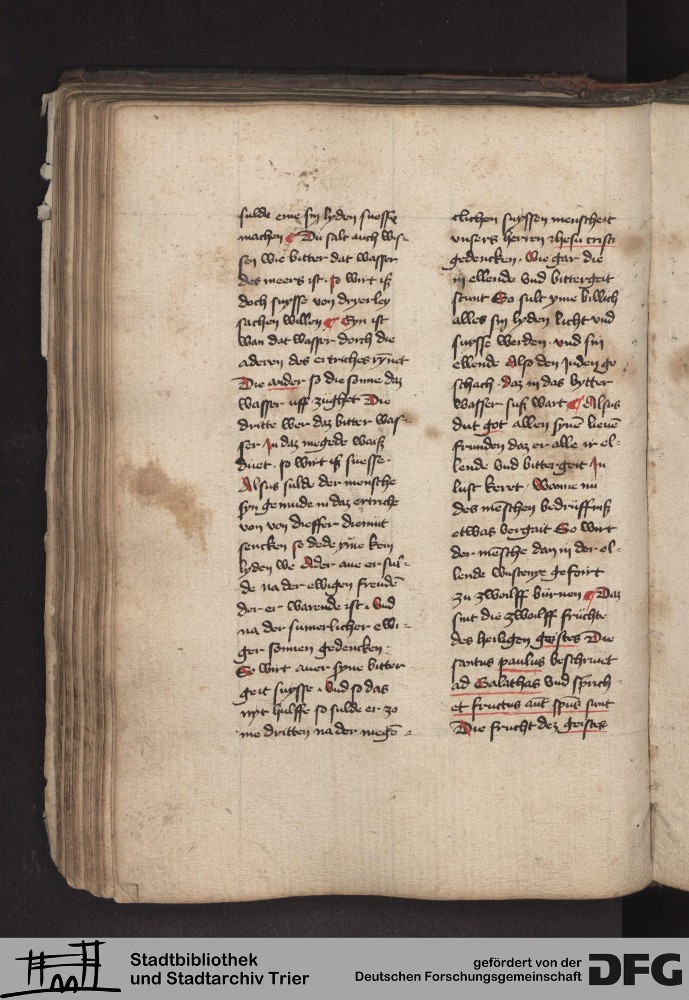 sulde eme sin lyden suesse
machen Du salt auch wis-
sen wie bitter dat wasser
des meers ist · so wirt iß
doch suysse von dryerley
sachen willen Eyn ist
wan dat wasser dorch die
aderen des ertriches rȳnet
Die ander so die sonne daz
wasser uff zughet Die
dritte wer daz bitter was-
ser In daz megede waiß
duet · so wirt iß suesse ·
Alsus sulde der mensche
syn gemude in daz ertriche
von dieffer diemut
sencken so dede yme kein
lyden we Ader aue er sul-
de na der ewigen freuden̄
der er warende ist · Vnd
na der sumerlicher ewi-
ger sonnen gedencken ·
So wirt auer syne bitter
geit suysse · Vnd so das
nyt hulffe so sulde er zo
me dritten na der megē-
clichen suyssen menscheit
vnsers herren ihesu cristi
gedencken · Wie gar die
in ellende vnd bittergeit
stunt So sult yme billich
alles sin lyden licht vnd
suysse werden · vnd sin
ellende Also den Juden ge
schach · daz in das bytter
wasser suß wart Alsus
dut got allen synē lieuē
frunden daz er alle ir el-
lende vnd bittergeit In
lust keret · Wanne nu
des mēschen bedruffniß
etwas vergait So wirt
der mēsche dan in der el-
lende wustenye gefoirt
zu zwoilff burnen Daz
sint die zwoilff früchte
des heiligen geistes Die
santus paulus beschriuet
ad Galathas vnd sprich-
et fructus aut̄ spūs sunt
Die frucht dez geistes
Stadtbibliothek
und Stadtarchiv Trier
gefördert von der
Deutschen Forschungsgemeinschaft
DFG